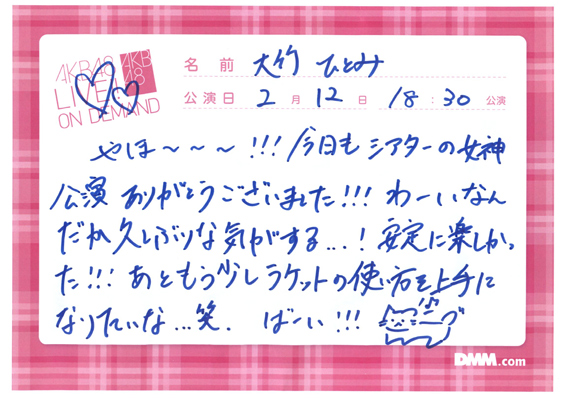 AKB48
LIVE!!
ON DEMAND
AKB
48
名前 大竹 ひとみ
公演日 2月12日 18:30公演
やほ〜〜〜!!!今日もシアターの女神
公演ありがとうございました!!!わーいなん
だか久しぶりな気がする...!安定に楽しかっ
た!!!あともう少しラケットの使い方を上手に
なりたいな...笑. ばーい!!!
DMM.com